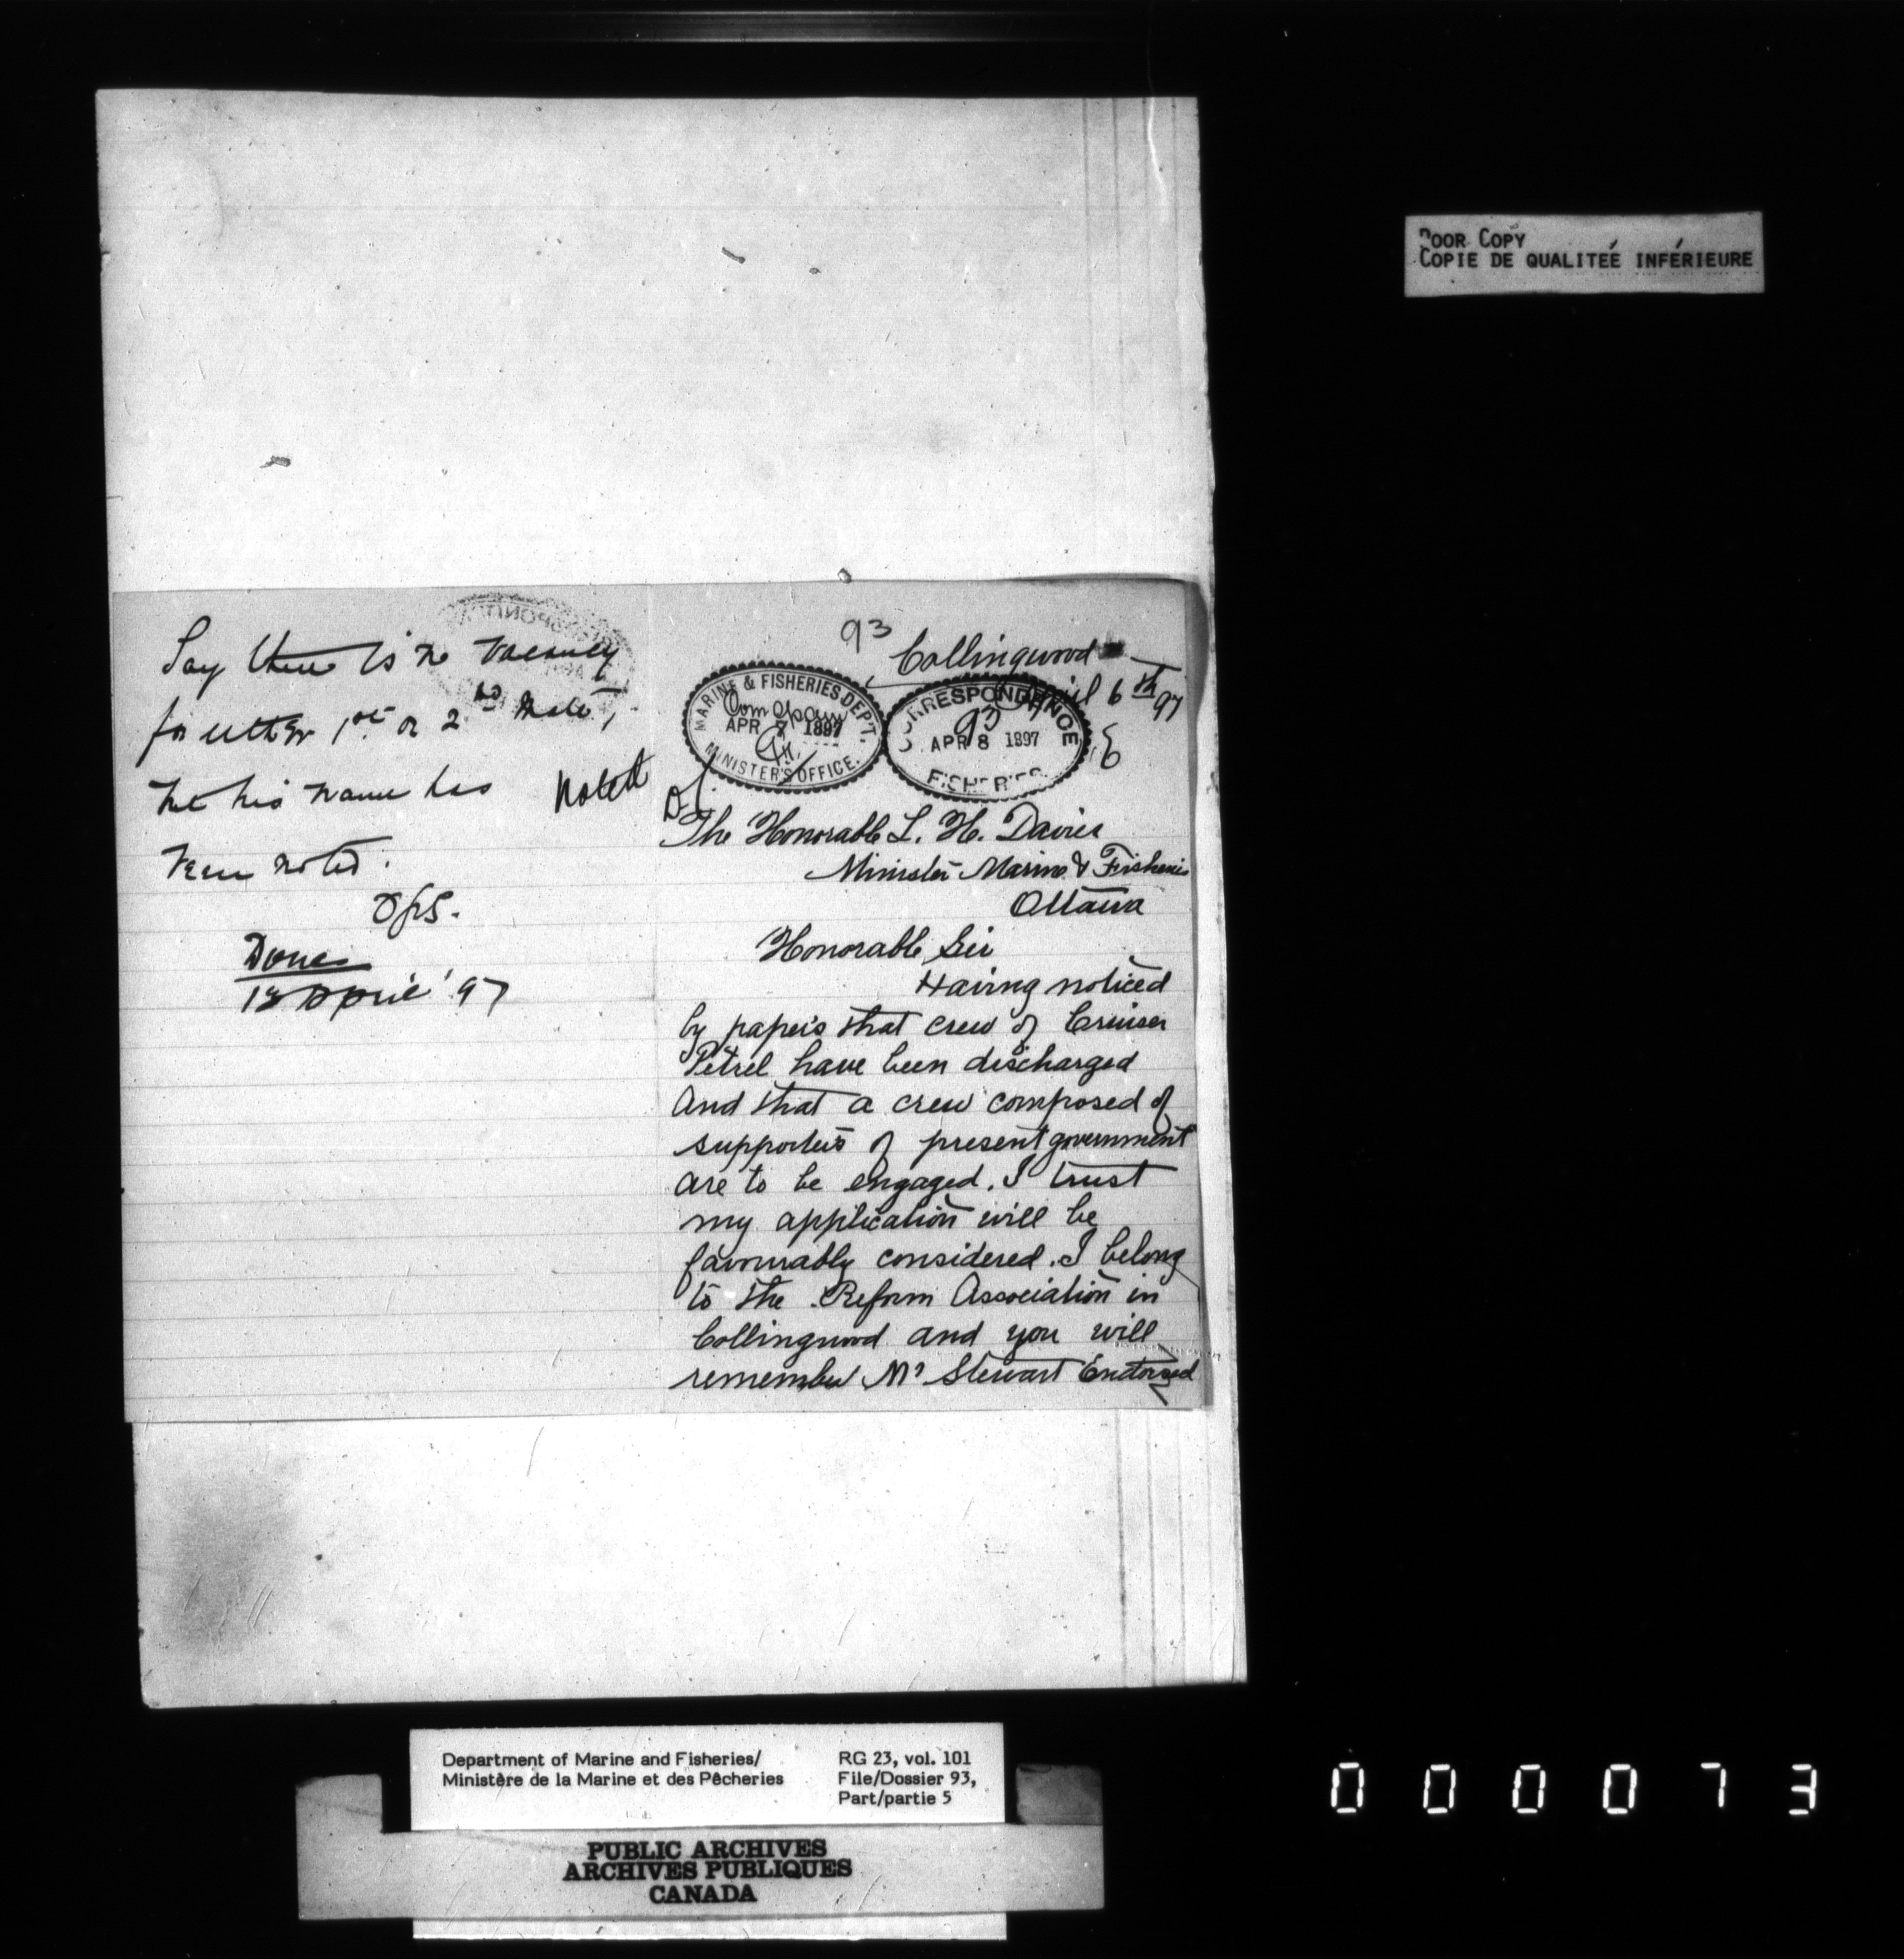 POOR COPY
COPIE DE QUALITEÉ INFÉRIEURE
Say there is no vacancy
for either 1st or 2nd Mate,
but his name has
been noted.
Done
April '97
Noted
93
Collingwood
April 6th 97
MARINE & FISHERIES DEPT.
APR 7 1897
MINISTER'S OFFICE.
CORRESPONDENCE
93
APR 8 1897
FISHERIES.
The Honorable L. H. Davies
Minister Marine & Fisheries
Ottawa
Honorable Sir
Having noticed
by papers that crew of Cruiser
Petrel have been discharged
And that a crew composed of
supporters of present government
are to be engaged. I trust
my application will be
favourably considered. I belong
to the Reform Association in
Collingwood and you will
remember Mr Stewart Endorsed
Department of Marine and Fisheries/
Ministère de la Marine et des Pêcheries
RG 23, vol. 101
File/Dossier 93,
Part/partie 5
PUBLIC ARCHIVES
ARCHIVES PUBLIQUES
CANADA
000073